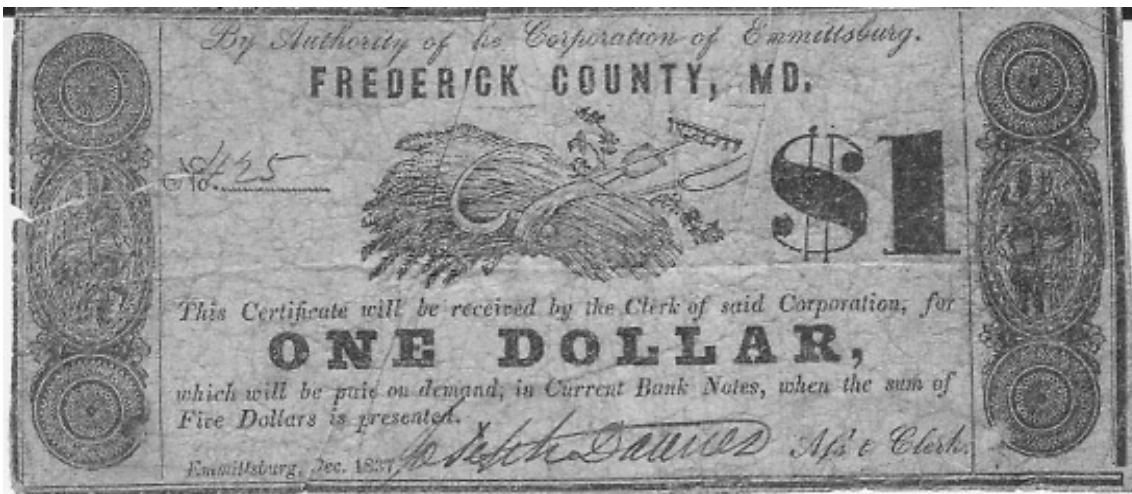 By Authority of the Corporation of Emmittsburg.
FREDERICK COUNTY, MD.
No. 425
$1
This Certificate will be received by the Clerk of said Corporation, for
ONE DOLLAR,
which will be paid on demand, in Current Bank Notes, when the sum of
Five Dollars is presented.
Emmittsburg, Dec. 1837 Joseph Clerk.